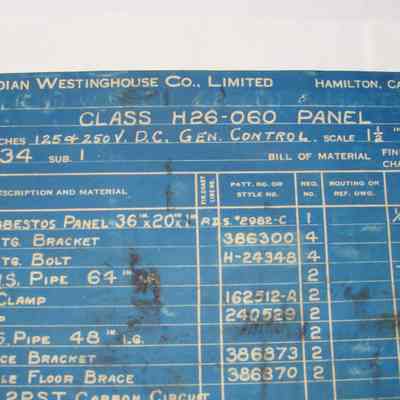 DIAN WESTINGHOUSE CO., LIMITED HAMILTON, CA
CLASS H26-060 PANEL
CHES 125 & 250 V. D.C. GEN. CONTROL. SCALE 1½"
34 SUB. 1 BILL OF MATERIAL FIN
CHA
ESCRIPTION AND MATERIAL PATT. NO. OR STYLE NO. REQ. NO. ROUTING OR REF. DWG.
BESTOS PANEL 36"x20"x1" R.D.S. #2982-C 1
TG. BRACKET 386300 4
TG. BOLT H-24348 4
.S. PIPE 64" 2
CLAMP 162512-A 2
240529 2
S. PIPE 48 IN. LG. 2
CE BRACKET 386873 2
LE FLOOR BRACE 386870 2
2PST CARBON CIRCUIT